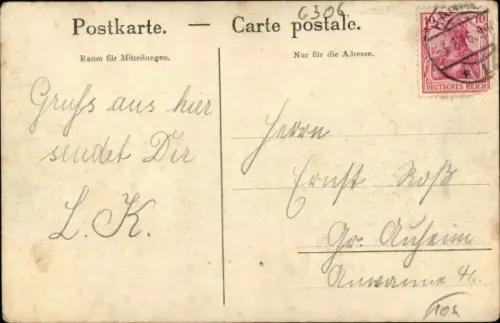 6306
Postkarte. — Carte postale.
Raum für Mitteilungen.
Nur für die Adresse.
10 10
DEUTSCHES REICH
Gruss aus hier
sendet Dir
L. K.
Herrn
Ernst Roß
Gr. Auheim